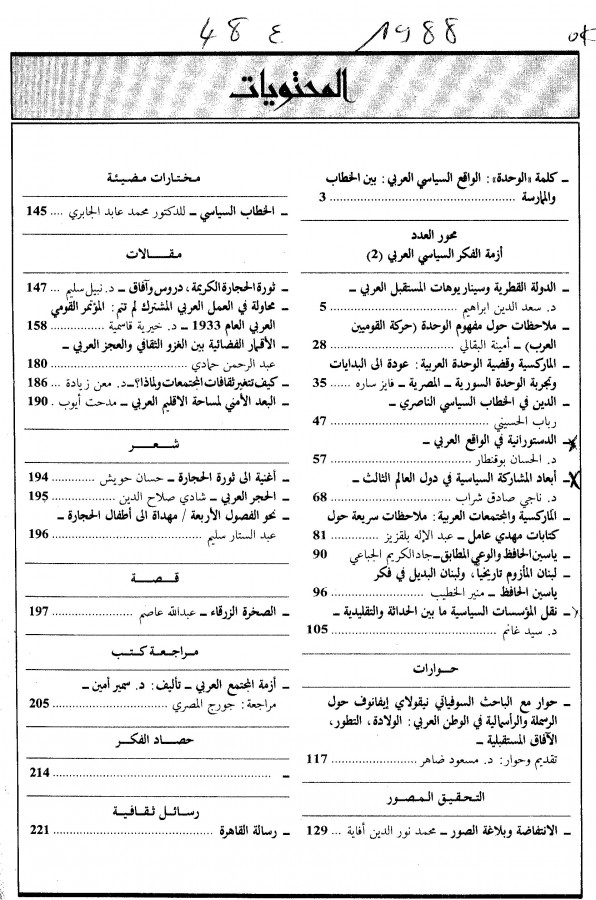 48 ع 1988 OK
المحتويات
ـ كلمة «الوحدة»: الواقع السياسي العربي: بين الخطاب
والممارسة ........ 3
محور العدد
أزمة الفكر السياسي العربي (2)
ـ الدولة القطرية وسيناريوهات المستقبل العربي ـ
د. سعد الدين ابراهيم ........ 5
ـ ملاحظات حول مفهوم الوحدة (حركة القوميين
العرب) ـ أمينة البقالي ........ 28
ـ الماركسية وقضية الوحدة العربية: عودة الى البدايات
وتجربة الوحدة السورية ـ المصرية ـ فايز ساره ........ 35
ـ الدين في الخطاب السياسي الناصري ـ
رباب الحسيني ........ 47
ـ الدستورانية في الواقع العربي ـ
د. الحسان بوقنطار ........ 57
ـ أبعاد المشاركة السياسية في دول العالم الثالث ـ
د. ناجي صادق شراب ........ 68
ـ الماركسية والمجتمعات العربية: ملاحظات سريعة حول
كتابات مهدي عامل ـ عبد الإله بلقزيز ........ 81
ـ ياسين الحافظ والوعي المطابق ـ جادالكريم الجباعي 90
ـ لبنان المأزوم تاريخياً، ولبنان البديل في فكر
ياسين الحافظ ـ منير الخطيب ........ 96
ـ نقل المؤسسات السياسية ما بين الحداثة والتقليدية ـ
د. سيد غانم ........ 105
حوارات
ـ حوار مع الباحث السوفياتي نيقولاي إيفانوف حول
الرسملة والرأسمالية في الوطن العربي: الولادة، التطور،
الآفاق المستقبلية ـ
تقديم وحوار: د. مسعود ضاهر ........ 117
التحقيق المصور
ـ الانتفاضة وبلاغة الصور ـ محمد نور الدين أفاية ... 129
مختارات مضيئة
ـ الخطاب السياسي ـ للدكتور محمد عابد الجابري .... 145
مقالات
ـ ثورة الحجارة الكريمة، دروس وآفاق ـ د. نبيل سليم ... 147
ـ محاولة في العمل العربي المشترك لم تتم: المؤتمر القومي
العربي العام 1933 ـ د. خيرية قاسمية ........ 158
ـ الأقمار الفضائية بين الغزو الثقافي والعجز العربي ـ
عبد الرحمن حمادي ........ 180
ـ كيف تتغير ثقافات المجتمعات ولماذا؟ ـ د. معن زيادة ... 186
ـ البعد الأمني لمساحة الاقليم العربي ـ مدحت أيوب . 190
شعر
ـ أغنية الى ثورة الحجارة ـ حسان حويش ........ 194
ـ الحجر العربي ـ شادي صلاح الدين ........ 195
ـ نحو الفصول الأربعة / مهداة الى أطفال الحجارة ـ
عبد الستار سليم ........ 196
قصة
ـ الصخرة الزرقاء ـ عبدالله عاصم ........ 197
مراجعة كتب
ـ أزمة المجتمع العربي ـ تأليف: د. سمير أمين ـ
مراجعة: جورج المصري ........ 205
حصاد الفكر
ـ ........ 214
رسائل ثقافية
ـ رسالة القاهرة ........ 221